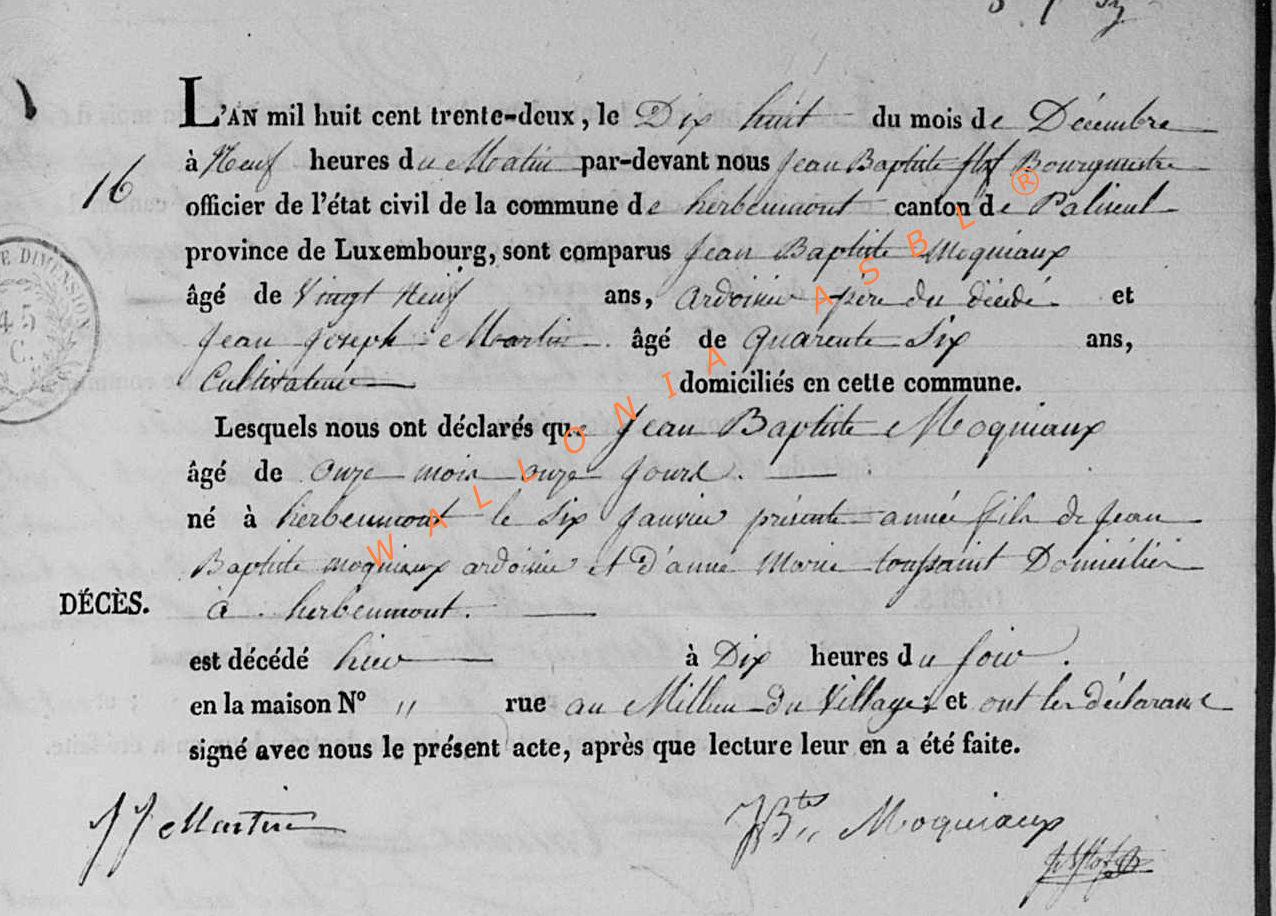 L'AN mil huit cent trente-deux, le Dix huit du mois de Décembre
16
à Neuf heures du Matin par-devant nous Jean Baptiste Bourgmestre
officier de l'état civil de la commune de herbeumont canton de Paliseul
province de Luxembourg, sont comparus Jean Baptiste Moquiaux
âgé de Vingt Neuf ans, Ardoisier père du décédé et
Jean Joseph Martin âgé de Quarente Six ans,
Cultivateur domiciliés en cette commune.
Lesquels nous ont déclarés que Jean Baptiste Moquiaux
âgé de Onze mois onze jours.
né à herbeumont le Six Janvier présente année fils de Jean
Baptiste moquiaux ardoisier et d'anne Marie toussaint Domiciliés
DÉCÈS.
à herbeumont.
est décédé hier à Dix heures du soir.
en la maison Nº " rue au Millieu du Village, et ont les déclarans
signé avec nous le présent acte, après que lecture leur en a été faite.
JJ Martin
JBte Moquiaux
E DIMENSION
45
C.
WALLONIA ASBL ®